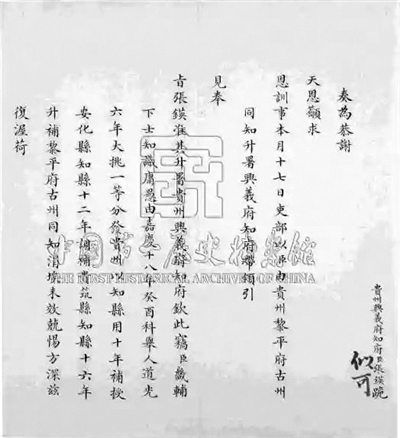 貴州興義府知府臣張鍈跪
似可
奏為恭謝
天恩籲求
恩訓事本月十七日吏部以臣由貴州黎平府古州
同知升署興義府知府帶領引
見奉
旨張鍈准其升署貴州興義府知府欽此竊臣畿輔
下士知識庸愚由嘉慶十八年癸酉科舉人道光
六年大挑一等分發貴州以知縣用十年補授
安化縣知縣十二年調補貴筑縣知縣十六年
升補黎平府古州同知涓埃未效兢惕方深茲
復渥荷
中国第一历史档案馆
THE FIRST HISTORICAL ARCHIVES OF CHINA